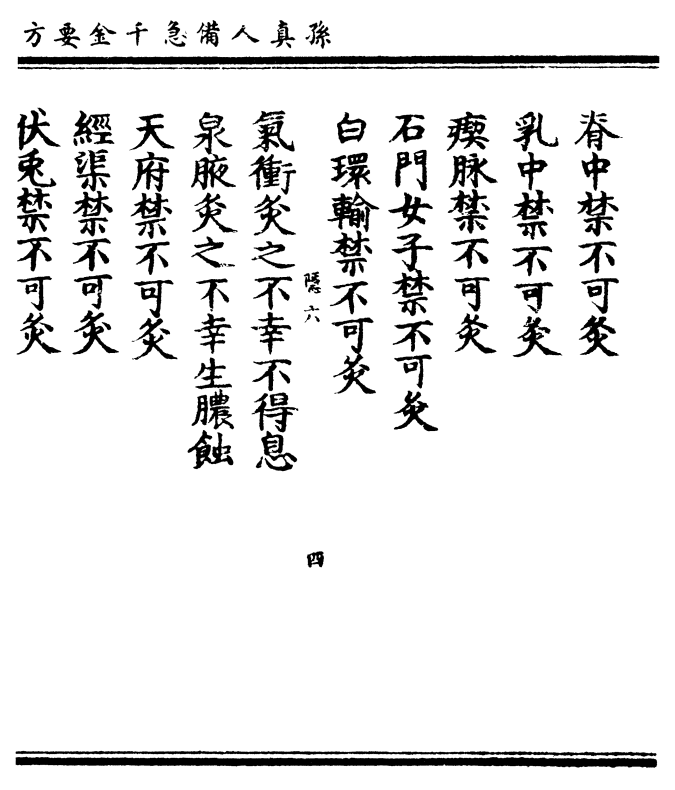 孫真人備急千金要方
脊中禁不可灸
乳中禁不可灸
瘈脉禁不可灸
石門女子禁不可灸
白環輸禁不可灸
隱六
四
氣衝灸之不幸不得息
泉腋灸之不幸生膿蝕
天府禁不可灸
經渠禁不可灸
伏兎禁不可灸